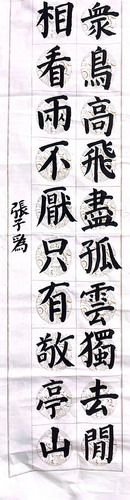 眾鳥高飛盡孤雲獨去閒
相看兩不厭只有敬亭山
張子為